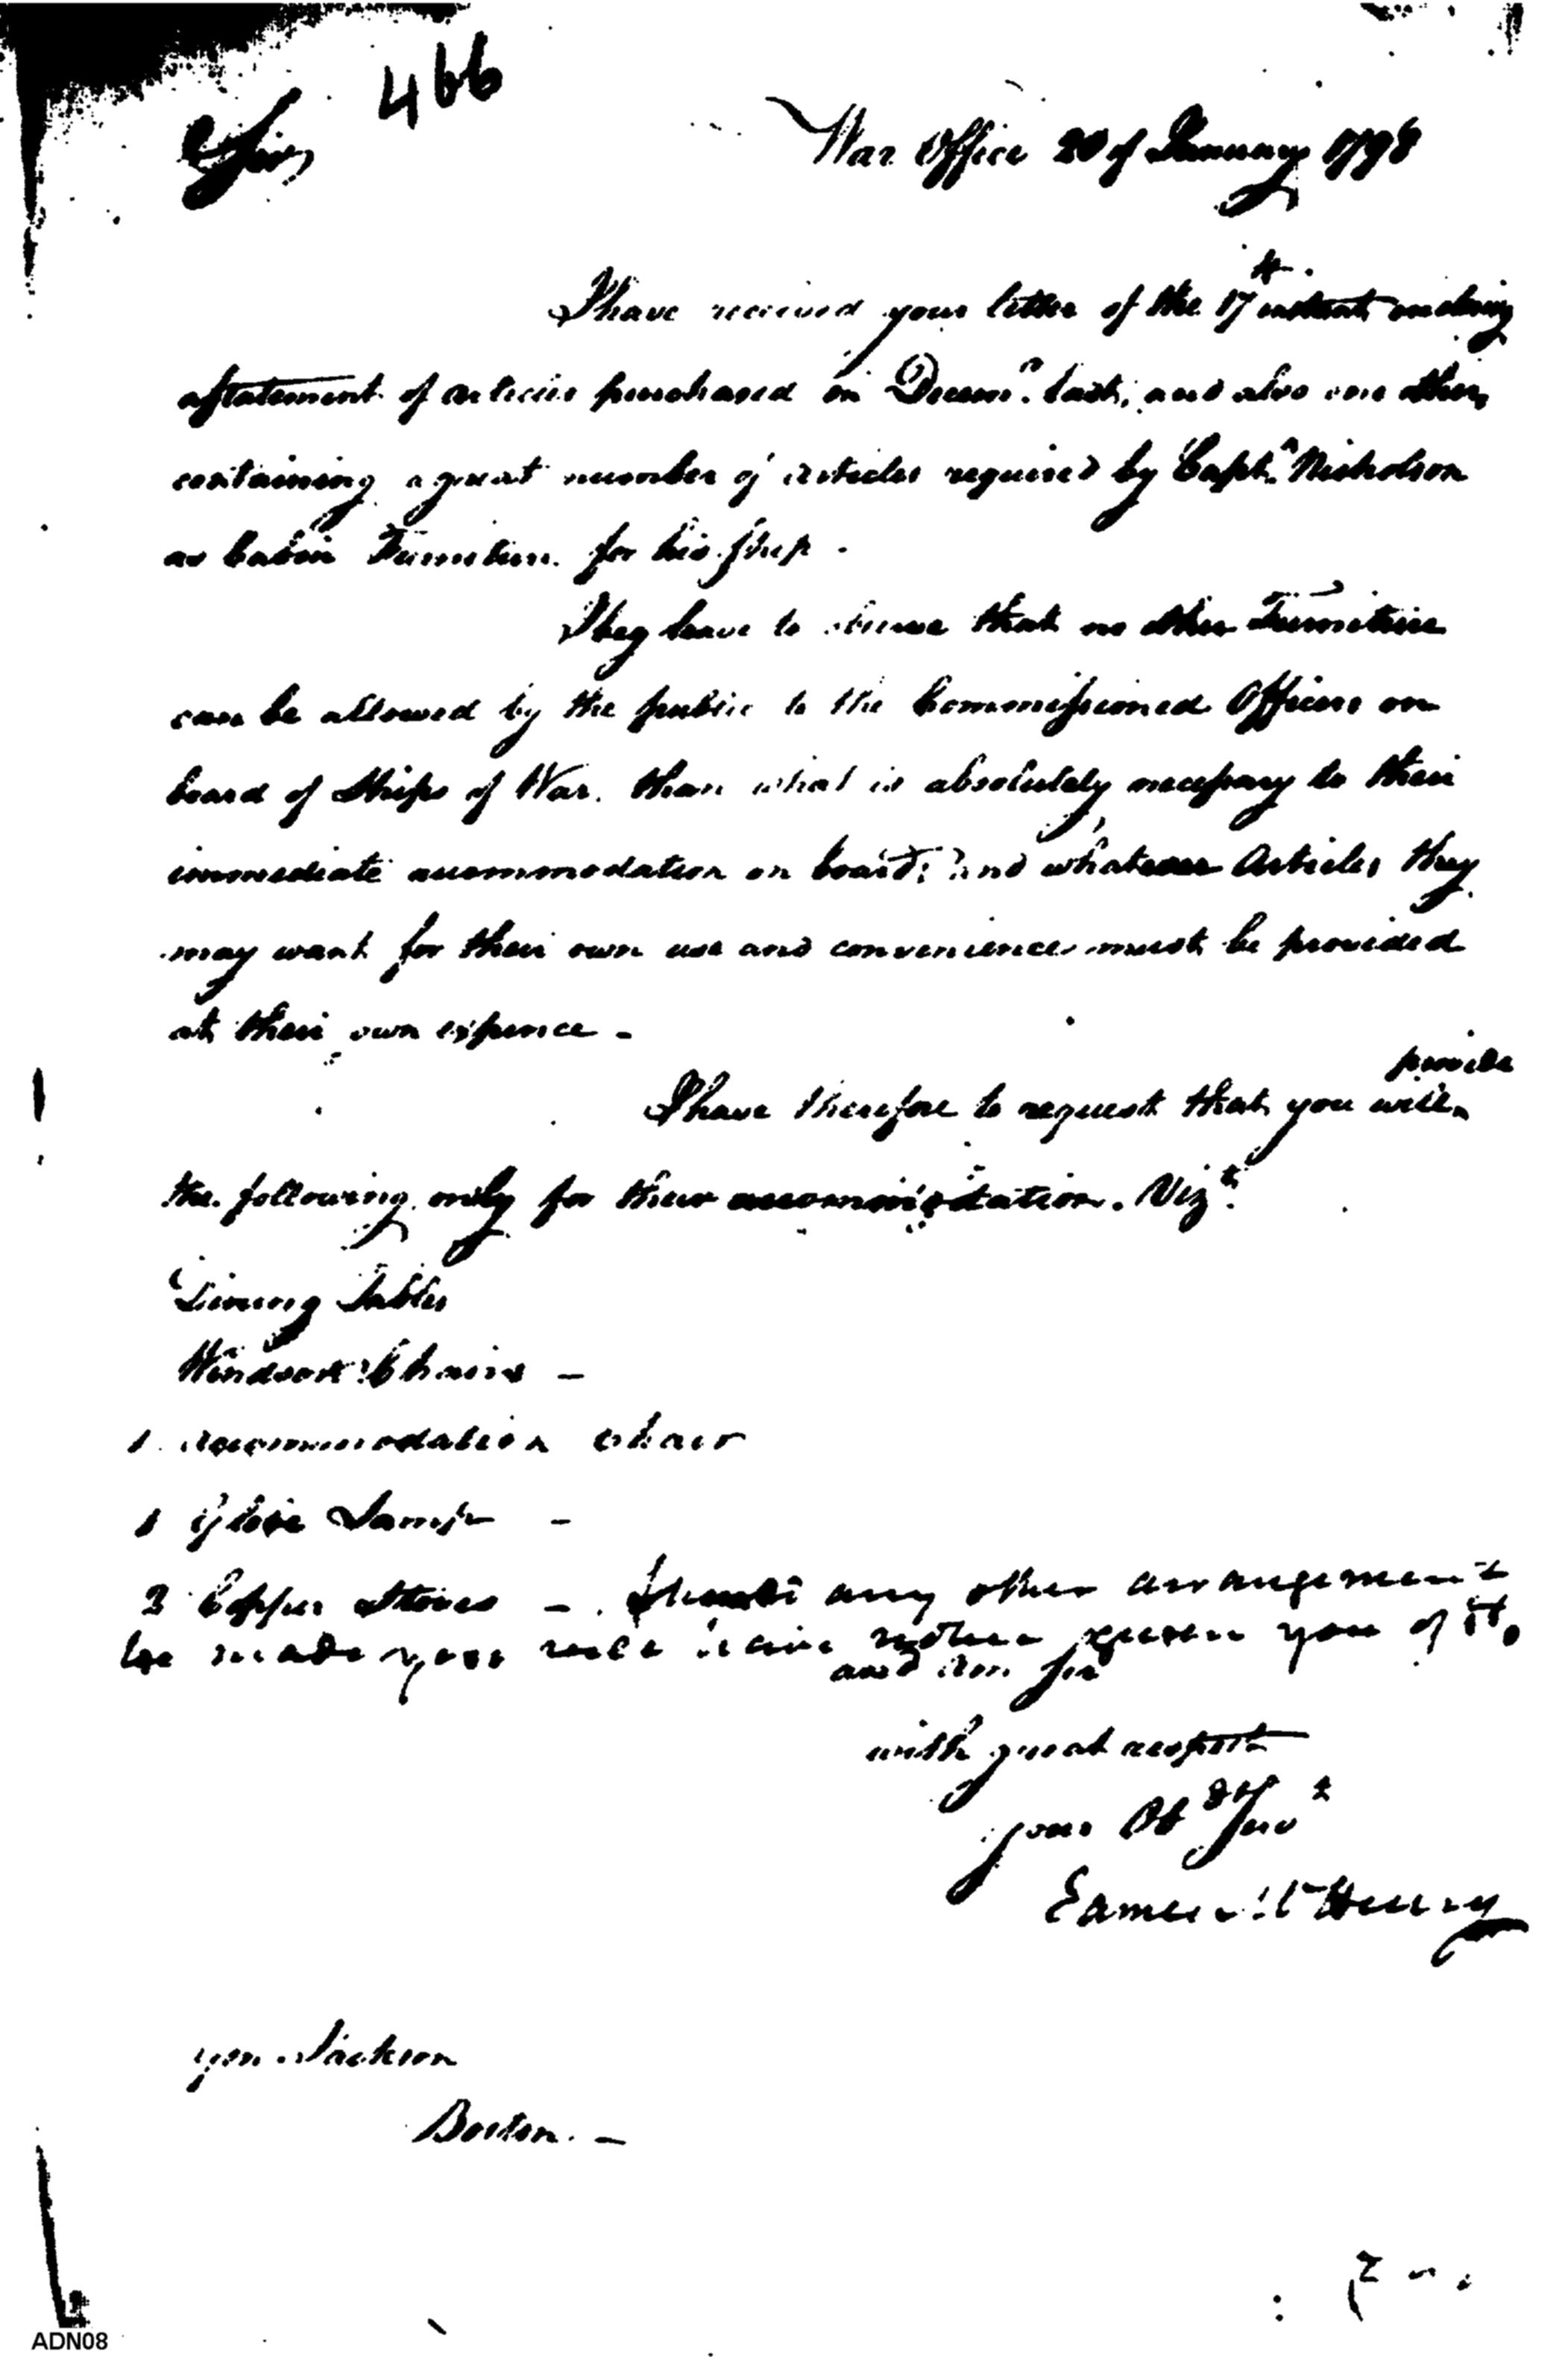 466
Sir, War Office 20 of January 1798
I have received your letter of the 17th instant enclosing
a statement of articles purchased in Decemr. last, and also one other,
containing a great number of articles required by Captn. Nicholson
as Cabin Furniture for his Ship -
I beg leave to observe that no other Furniture
can be allowed by the public to the Commissioned Officers on
board of Ships of War, than what is absolutely necessary to their
immediate accommodation on board; and whatever Articles they
may want for their own use and convenience must be provided
at their own expence -
provide
I have therefore to request that you will
the following only for their accommodation. Vizt.
Dining Tables
Windsor Chairs -
1 accommodation chair
1 Globe Lamp -
3 Copper Stoves - Should any other arrangement
be made you will have notice given you of it,
and am Sir
with great respect
your Obed Servt
James McHenry
Gen. Jackson
Boston. -
ADN08